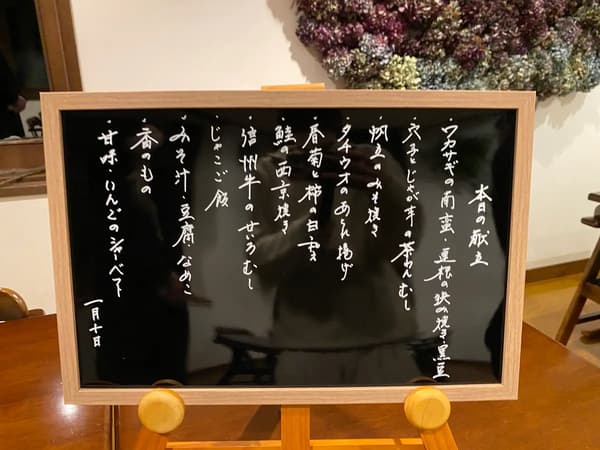 本日の献立
・ワカサギの南蛮・蓮根の映め焼き・黒豆
・穴子とじゃが芋の茶わんむし
・帆立のみそ焼き
・タチウオのあられ揚げ
・春菊と柿の白寄
・鮭の西京焼き
・信州牛のせいろむし
・じゃこご飯
・みそ汁・豆腐・なめこ
・香のもの
・甘味・りんごのシャーベット
一月十日